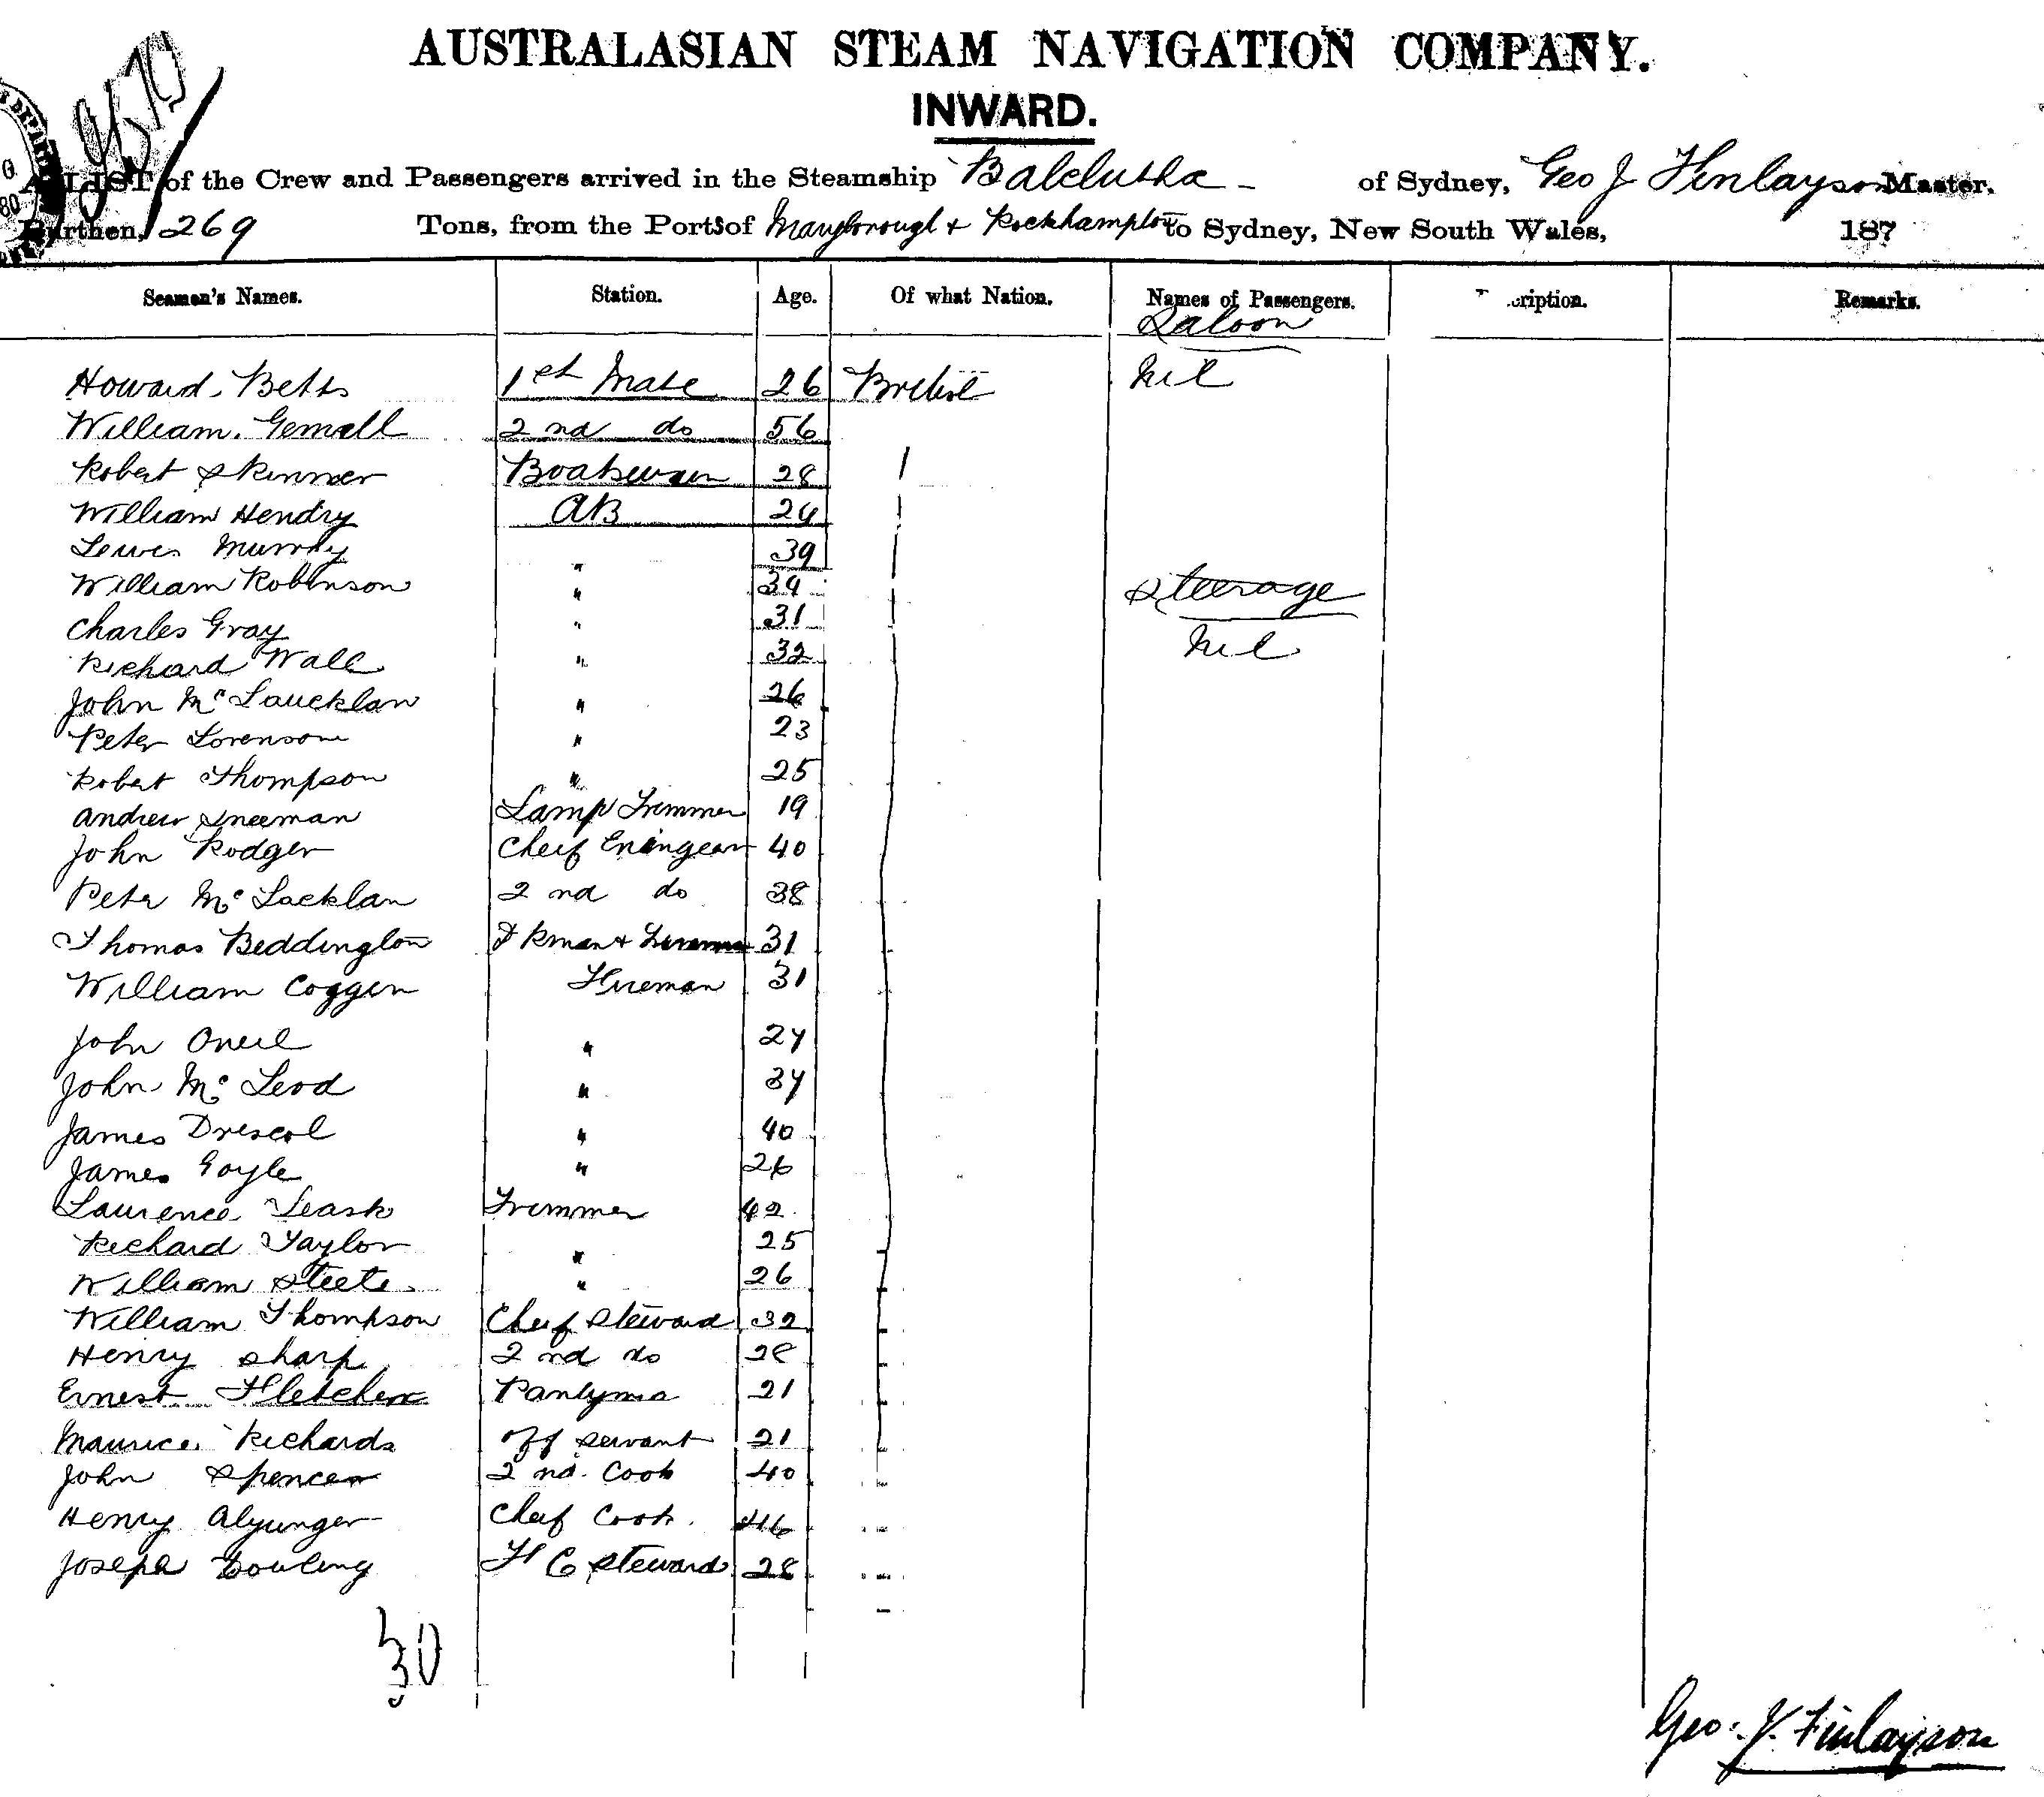 AUSTRALASIAN STEAM NAVIGATION COMPANY.
INWARD.
A LIST of the Crew and Passengers arrived in the Steamship Balclutha of Sydney, Geo J Finlayson Master.
Burthen, 269 Tons, from the Ports of Maryborough & Rockhampton to Sydney, New South Wales, 187
Seamen's Names. Station. Age. Of what Nation. Names of Passengers. Description. Remarks.
Saloon
Howard Betts 1st Mate 26 British Nil
William Gemell 2nd do 56
Robert Skinner Boatswain 28
William Hendry AB 24
Lewis Murray " 39
William Robinson " 34 Steerage
Charles Gray " 31 Nil
Richard Wall " 32
John Mc Laucklan " 26
Peter Lorenson " 23
Robert Thompson " 25
Andrew Sneeman Lamp Trimmer 19
John Rodger Cheif Eningear 40
Peter Mc Lacklan 2nd do 38
Thomas Beddington & 31
William Coggen Fireman 31
John Oneil " 27
John Mc Leod " 37
James Driscol " 40
James Goyle " 26
Laurence Leask Trimmer 42
Richard Taylor " 25
William Steets " 26
William Thompson Cheif Steward 32
Henry Sharp 2nd do 28
Ernest Fletcher Pantyma 21
Maurice Richards Off Servant 21
John Spencer 2nd. Cook 40
Henry Alyunger Cheif Cook. 46
Joseph Steward 28
30
Geo: J. Finlayson